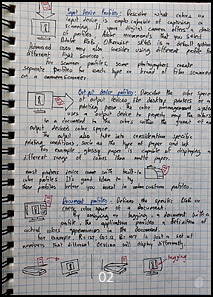 Input Device profiles: Describe what colors an
input device is capable of capturing or
scanning. Some digital cameras offer a choice
of profiles Adobe
Adobe RGB. Otherwise sRGB is a default option
Advanced users may also consider using different profiles for
different light sources
For scanner profiles, some photographers create
separate profiles for each type or brand of film scanned
on a scanner.
Output device profiles: Describe the color space
of output devices like desktop printers or a
printing press. The color management system
uses a output device to properly map the colors
in a document to the colors within the gamut of an
output device's color space.
The output also take into consideration specific
printing conditions, such as the type of paper and ink
For example glossy paper is capable of displaying a
different range of colors than matte paper.
most printers device come with built-in
color profiles. It's good idea to try
those profiles before you invest in custom profiles.
Document profiles: Defines the specific RGB or
color of a document.
By assigning or tagging a document with a
profile, the application provides a definition of
actual colors appearances in the document.
For example, R=127, G=12, B=107 is just a set of
numbers that different devices will display differently.
tagging
02